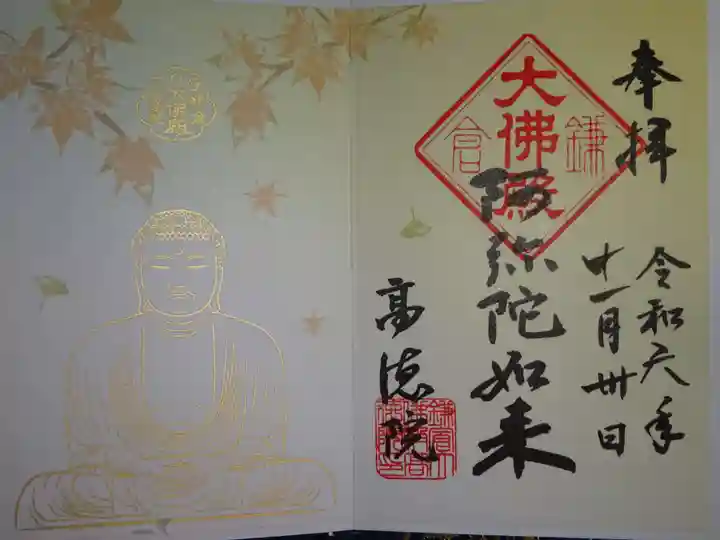 奉拝
令和六年
十一月卅日
鎌倉
大佛殿
阿弥陀如来
高徳院